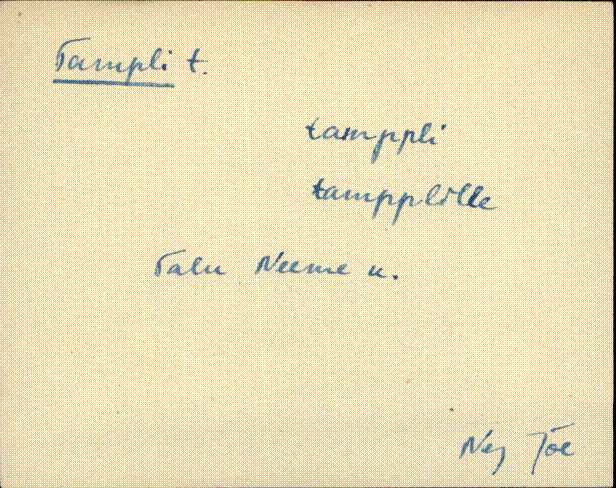 Tampli t.
tamppli
tampplille
Talu Neeme k.
Jõe